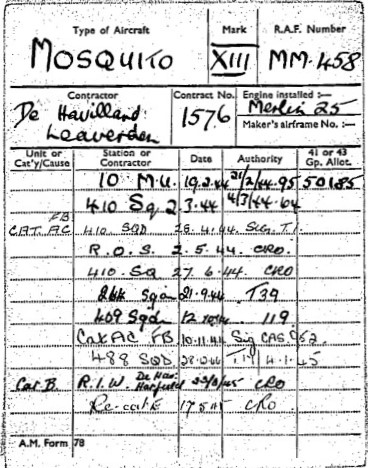 Type of Aircraft Mark R.A.F. Number
MOSQUITO XIII MM-458
Contractor Contract No. Engine installed :—
De Havilland 1576 Merlin 25
Leavesden Maker's airframe No. :—
Unit or Cat'y/Cause Station or Contractor Date Authority 41 or 43 Gp. Allot.
10 M.U. 19.2.44 21/2/44.95 50185
410 Sq 2.3.44 4/3/44.64
FB
CAT. AC 410 SQD 28.4.44 SIG. T.1
R.O.S. 2.5.44. CRO.
410. SQ 27.6.44. CRO
264 Sqdn 21-9-44 T39
409 Sqd 12 119
Cat AC FB 10.11.44 Sig CAS.
488 SQD 4.1.45
De Hav.
Cat B. R.I.W. Hatfield CRO
Re-cat E CRO
A.M. Form 78